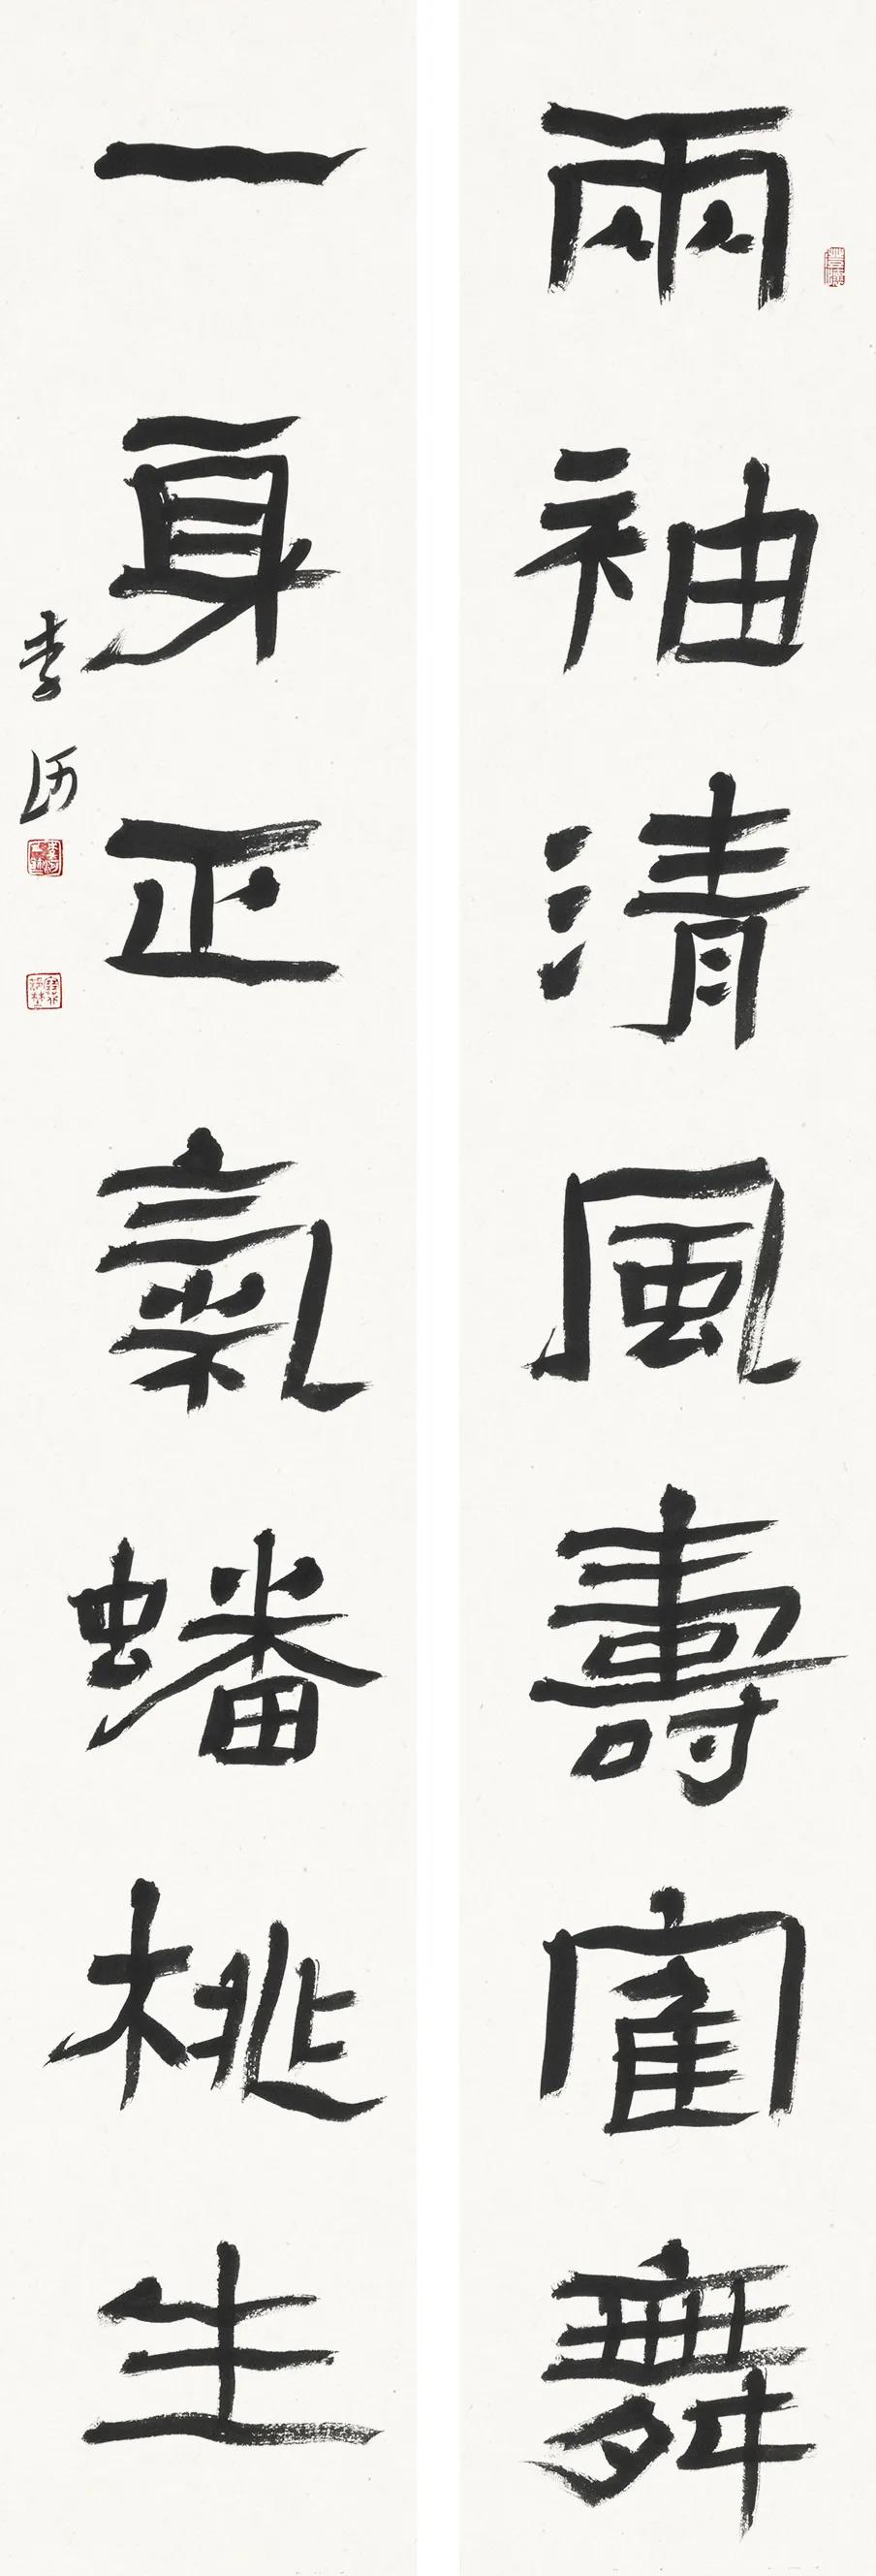 兩袖清風壽寉舞
一身正氣蟠桃生
李